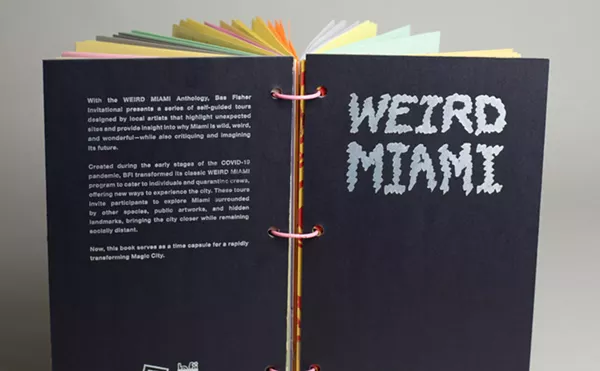 With the WEIRD MIAMI Anthology, Bas Fisher
Invitational presents a series of self-guided tours
designed by local artists that highlight unexpected
sites and provide insight into why Miami is wild, weird,
and wonderful—while also critiquing and imagining
its future.
Created during the early stages of the COVID-19
pandemic, BFI transformed its classic WEIRD MIAMI
program to cater to individuals and quarantine crews,
offering new ways to experience the city. These tours
invite participants to explore Miami surrounded
by other species, public artworks, and hidden
landmarks, bringing the city closer while remaining
socially distant.
Now, this book serves as a time capsule for a rapidly
transforming Magic City.
WEIRD
MIAMI